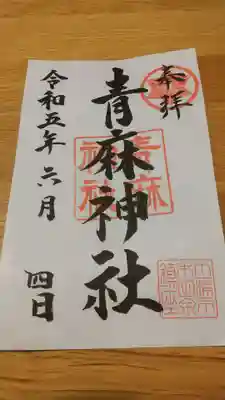 奉拝
青麻神社
令和五年 六月 四日
青麻神社